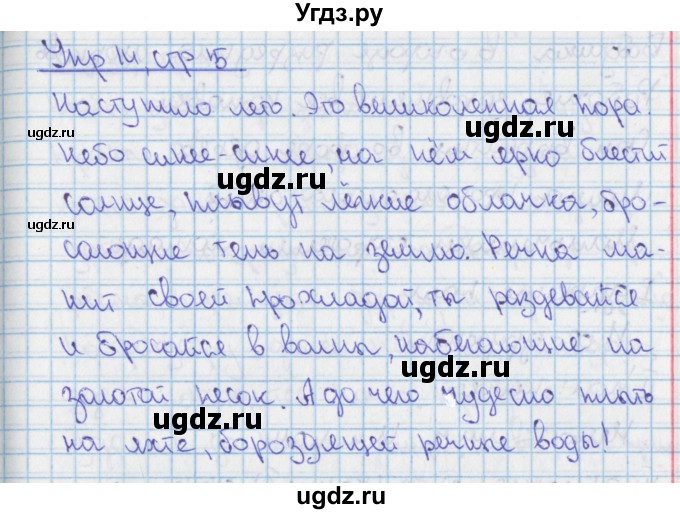 Угдз.ру
Упр 14, стр 15
Наступило лето. Это великолепная пора.
Небо синее-синее, на нём ярко блестит
солнце, плывут лёгкие облачка, бро-
сающие тень на землю. Речка ма-
нит своей прохладой, ты раздевайся
и бросайся в волны, набегающие на
золотой песок. А до чего чудесно плыть
на яхте, бороздящей речные воды!
ugdz.ru
ugdz.ru
ugdz.ru
ugdz.ru
ugdz.ru
ugdz.ru
ugdz.ru
ugdz.ru
ugdz.ru
ugdz.ru
ugdz.ru